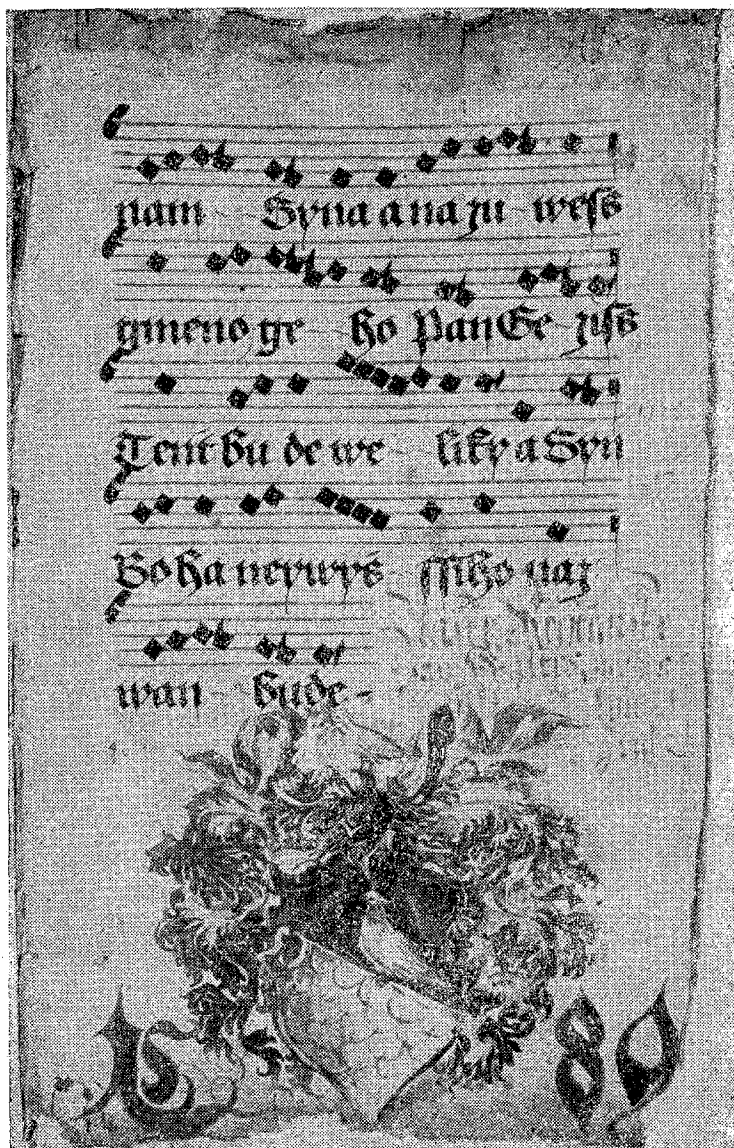 nam Syna a nazuwess
gmeno geho pan Geziss
Tent bude weliky a Syn
Boha neywyssiho naz
wan bude
80